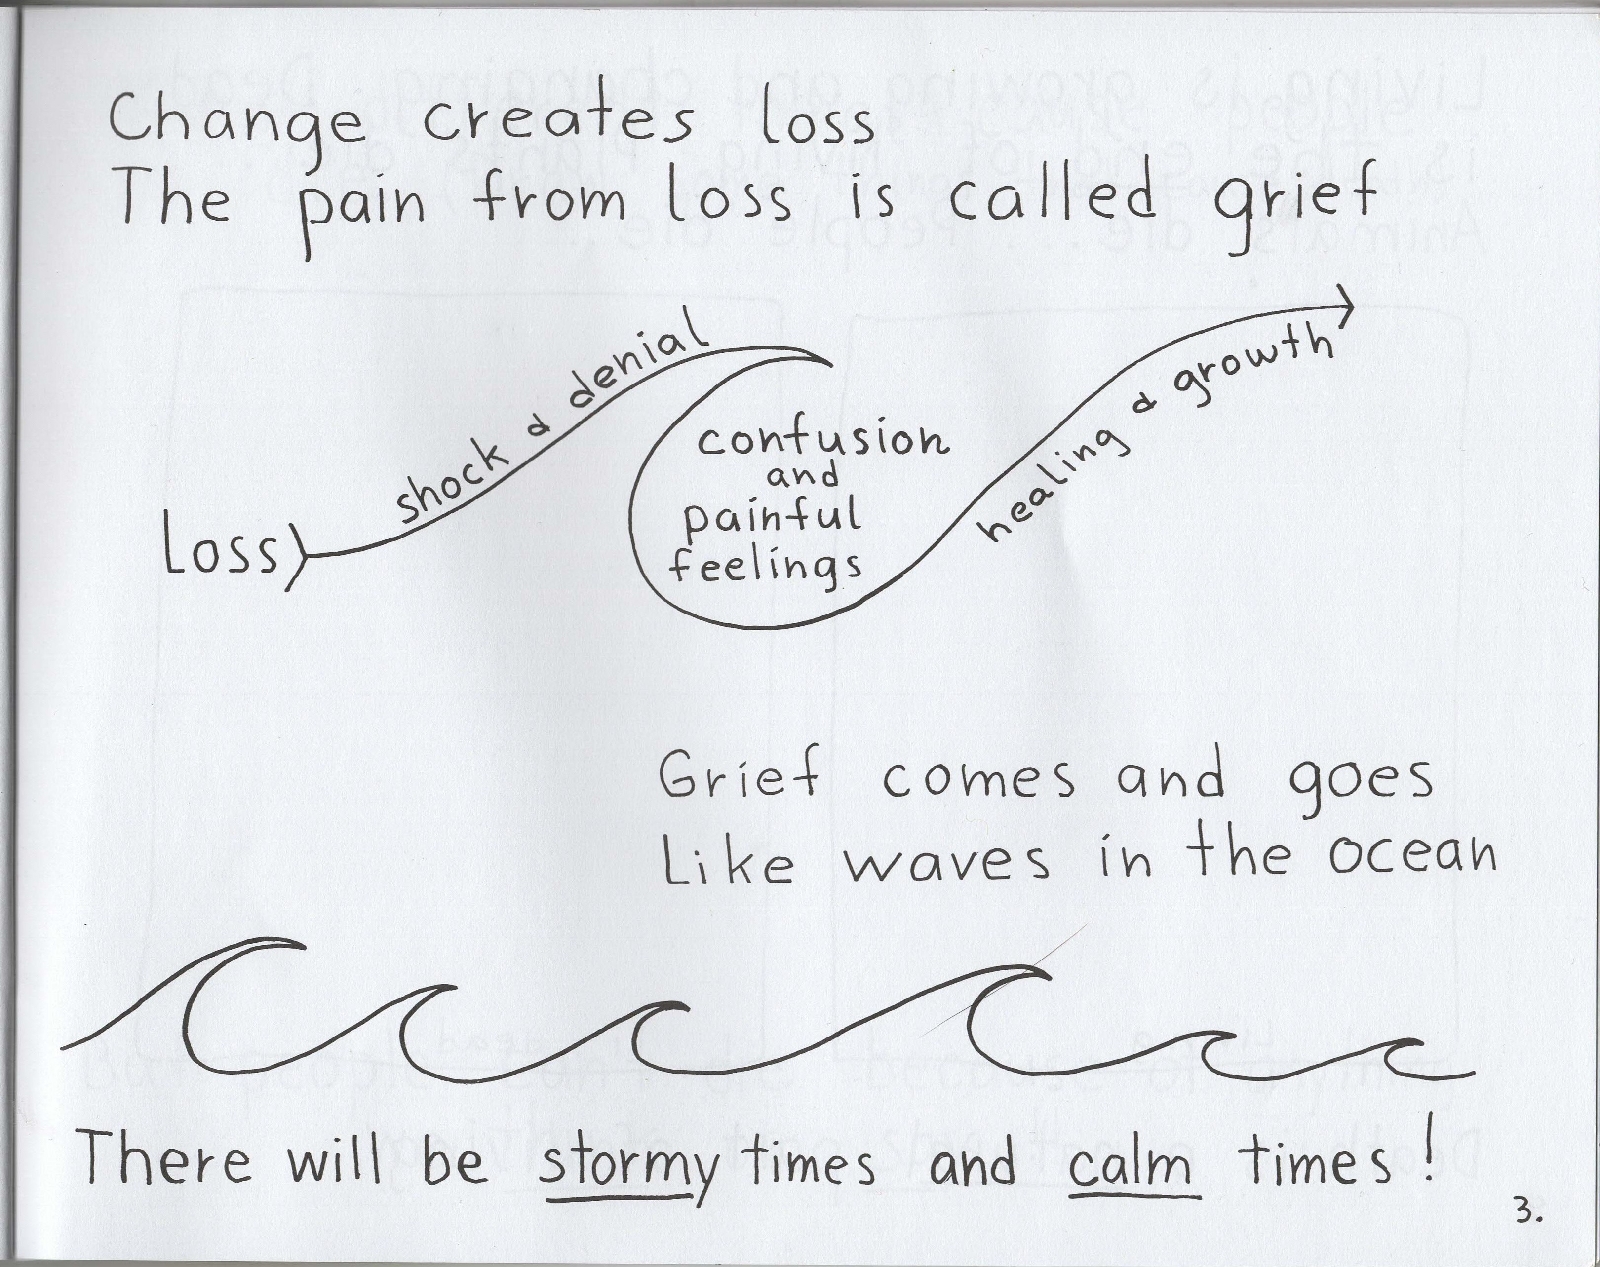 Change creates loss
The pain from loss is called grief
Loss
shock & denial
confusion
and
painful
feelings
healing & growth
Grief comes and goes
Like waves in the ocean
There will be stormy times and calm times!
3.